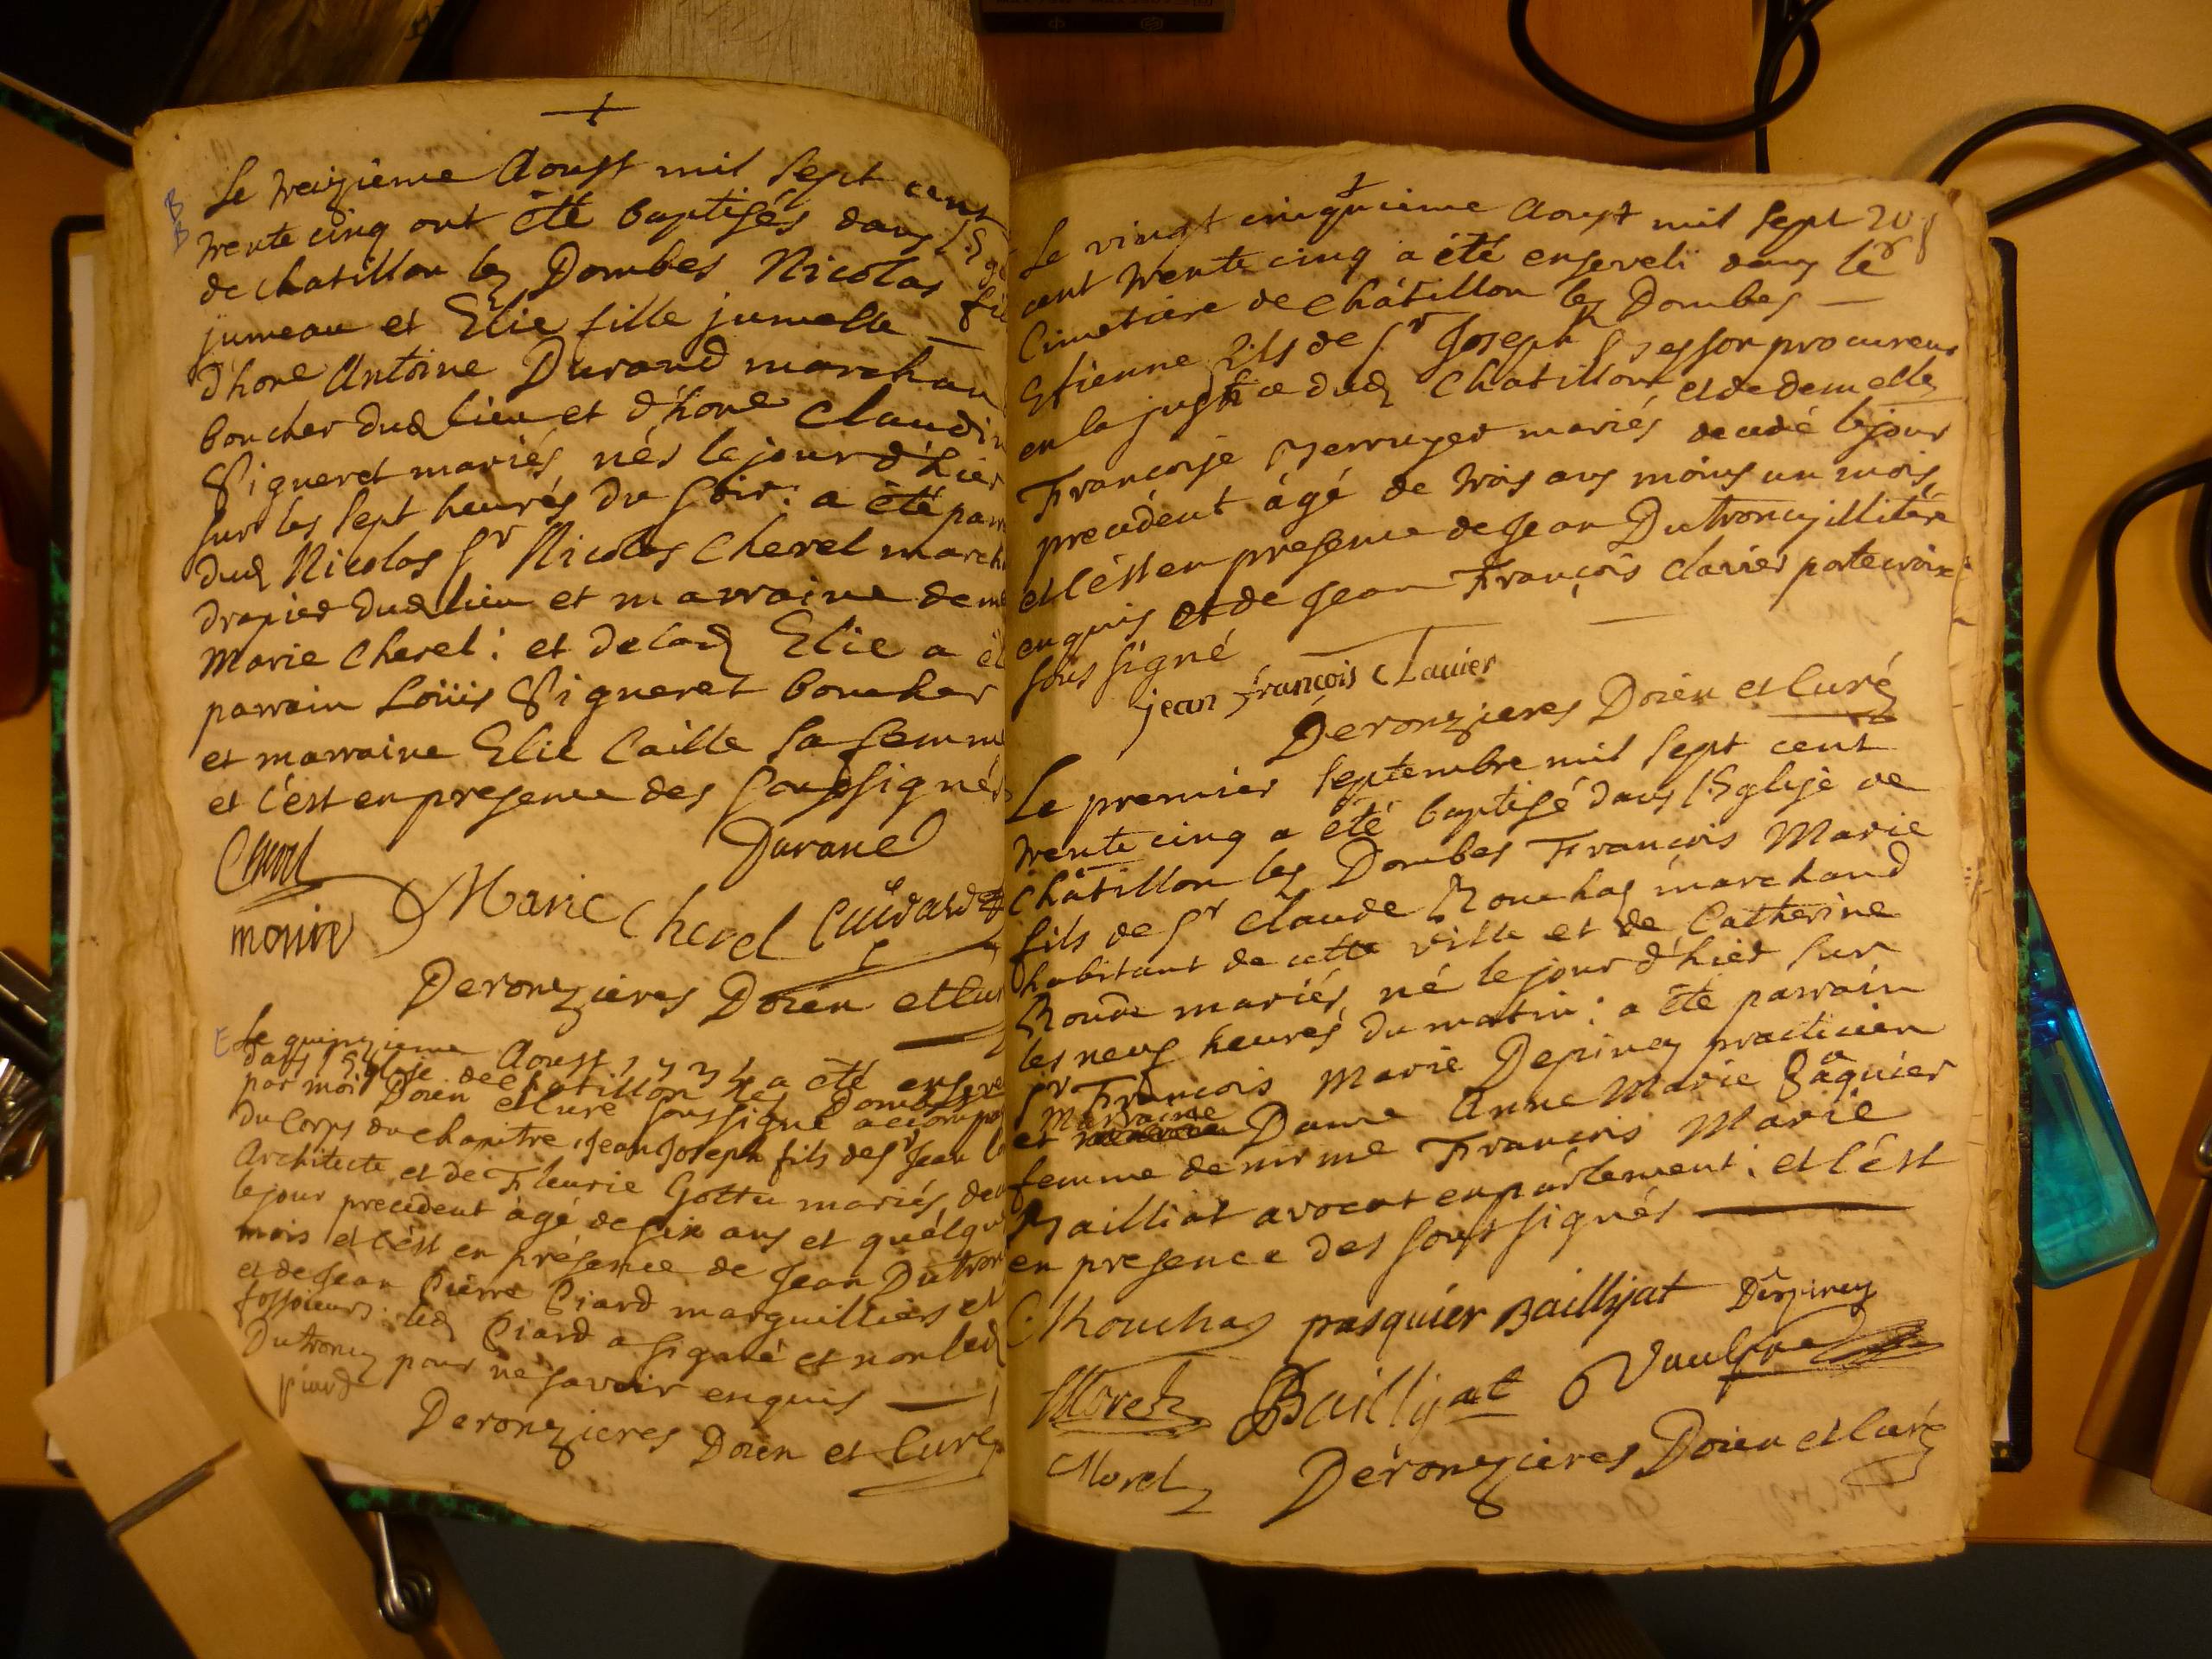 B
B
Le treizieme Aoust mil sept cent
trente cinq ont été baptisés dans l'Egl
de chatillon les Dombes Nicolas fils
jumeau et Elie fille jumelle —
d'hone Antoine Durand marchan
boucher dud lieu et d'hone Claudin
Vigneret mariés, nés le jour d'hier
sur les sept heurés du soir: a été parr
dud Nicolas Sr Nicolas Cherel march
drapier dud lieu et marraine dem
Marie Cherel: et de lad Elie a ét
parrain Loüis Vigneret boucher
et marraine Elie Caille sa femm
et c'est en presence des soussignés
Durand
Cherel
Marie Cherel Guidard
Deronzieres Doïen et Cur
E Le quinzieme Aoust 1735 a été enseve
dans l'Eglise de Chatillon les Dombes
par moi Doïen et Curé soussigné accompa
du Corps du chapitre, Jean Joseph fils de Sr Jean
Architecte, et de Fleurie Gottu mariés, dec
le jour precedent âgé de six ans et quélque
mois et c'est en présence de Jean Dutron
et de Jean Pierre Piard marguilliers et
fossoieurs: led Piard a signé et non led
Dutroncy pour ne savoir enquis —
piard
Deronzieres Doïen et Curé
Le vingt cinquieme Aoust mil sept
cent trente cinq a été enseveli dans le
Cimetiere de Châtillon les Dombes —
Etienne fils de Sr Joseph Besson procureur
en la justice dud Chatillon et de demelle
Francoise Perruyer mariés decedé le jour
precedent âgé de trois ans moins un mois,
et c'est en presence de Jean Dutroncy illitéré
enquis et de Jean François Clavier porte croix
sous signé —
jean françois Clauier
Deronzieres Doïen et Curé
Le premier Septembre mil sept cent
trente cinq a été baptisé dans l'Eglise de
Châtillon les Dombes François Marie
fils de Sr Claude Rouchas marchand
habitant de cette ville et de Catherine
mariés, né le jour d'hier sur
les neuf heures du matin: a été parrain
Sr François Marie Depiney practicien
marraine
et Dame Anne Marie Pâquier
femme de François Marie
Bailliat avocat en parlement: et c'est
en presence des soussignés —
C Rouchas pasquier Baillyat Depiney
Morel Baillyat
Morel Déronzieres Doïen et Curé